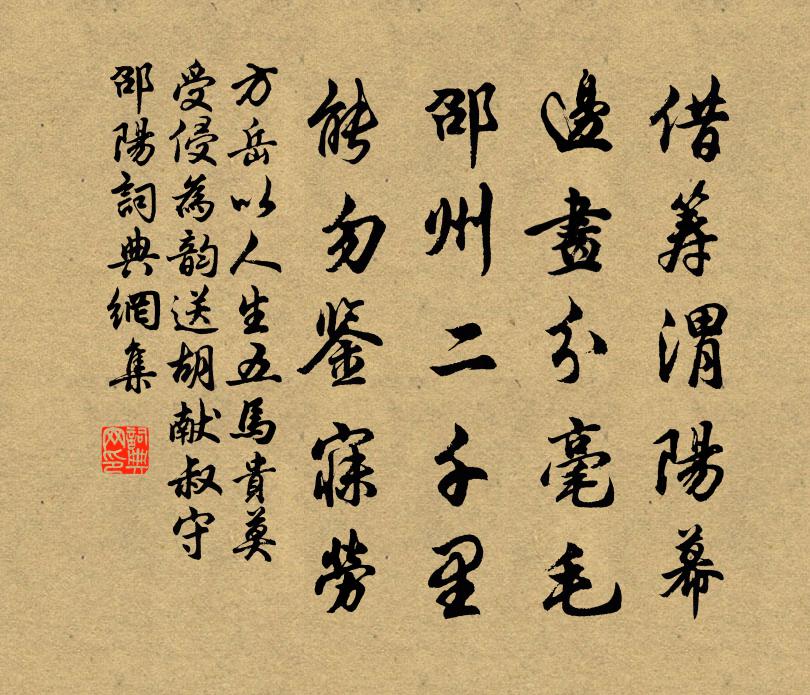 借筹渭陽幕
邊畫分毫毛
邵州二千里
能勿鉴寐勞
方岳以人生五馬貴莫
受侵為韵送胡献叔守
邵陽詞典網集
詞典
网印